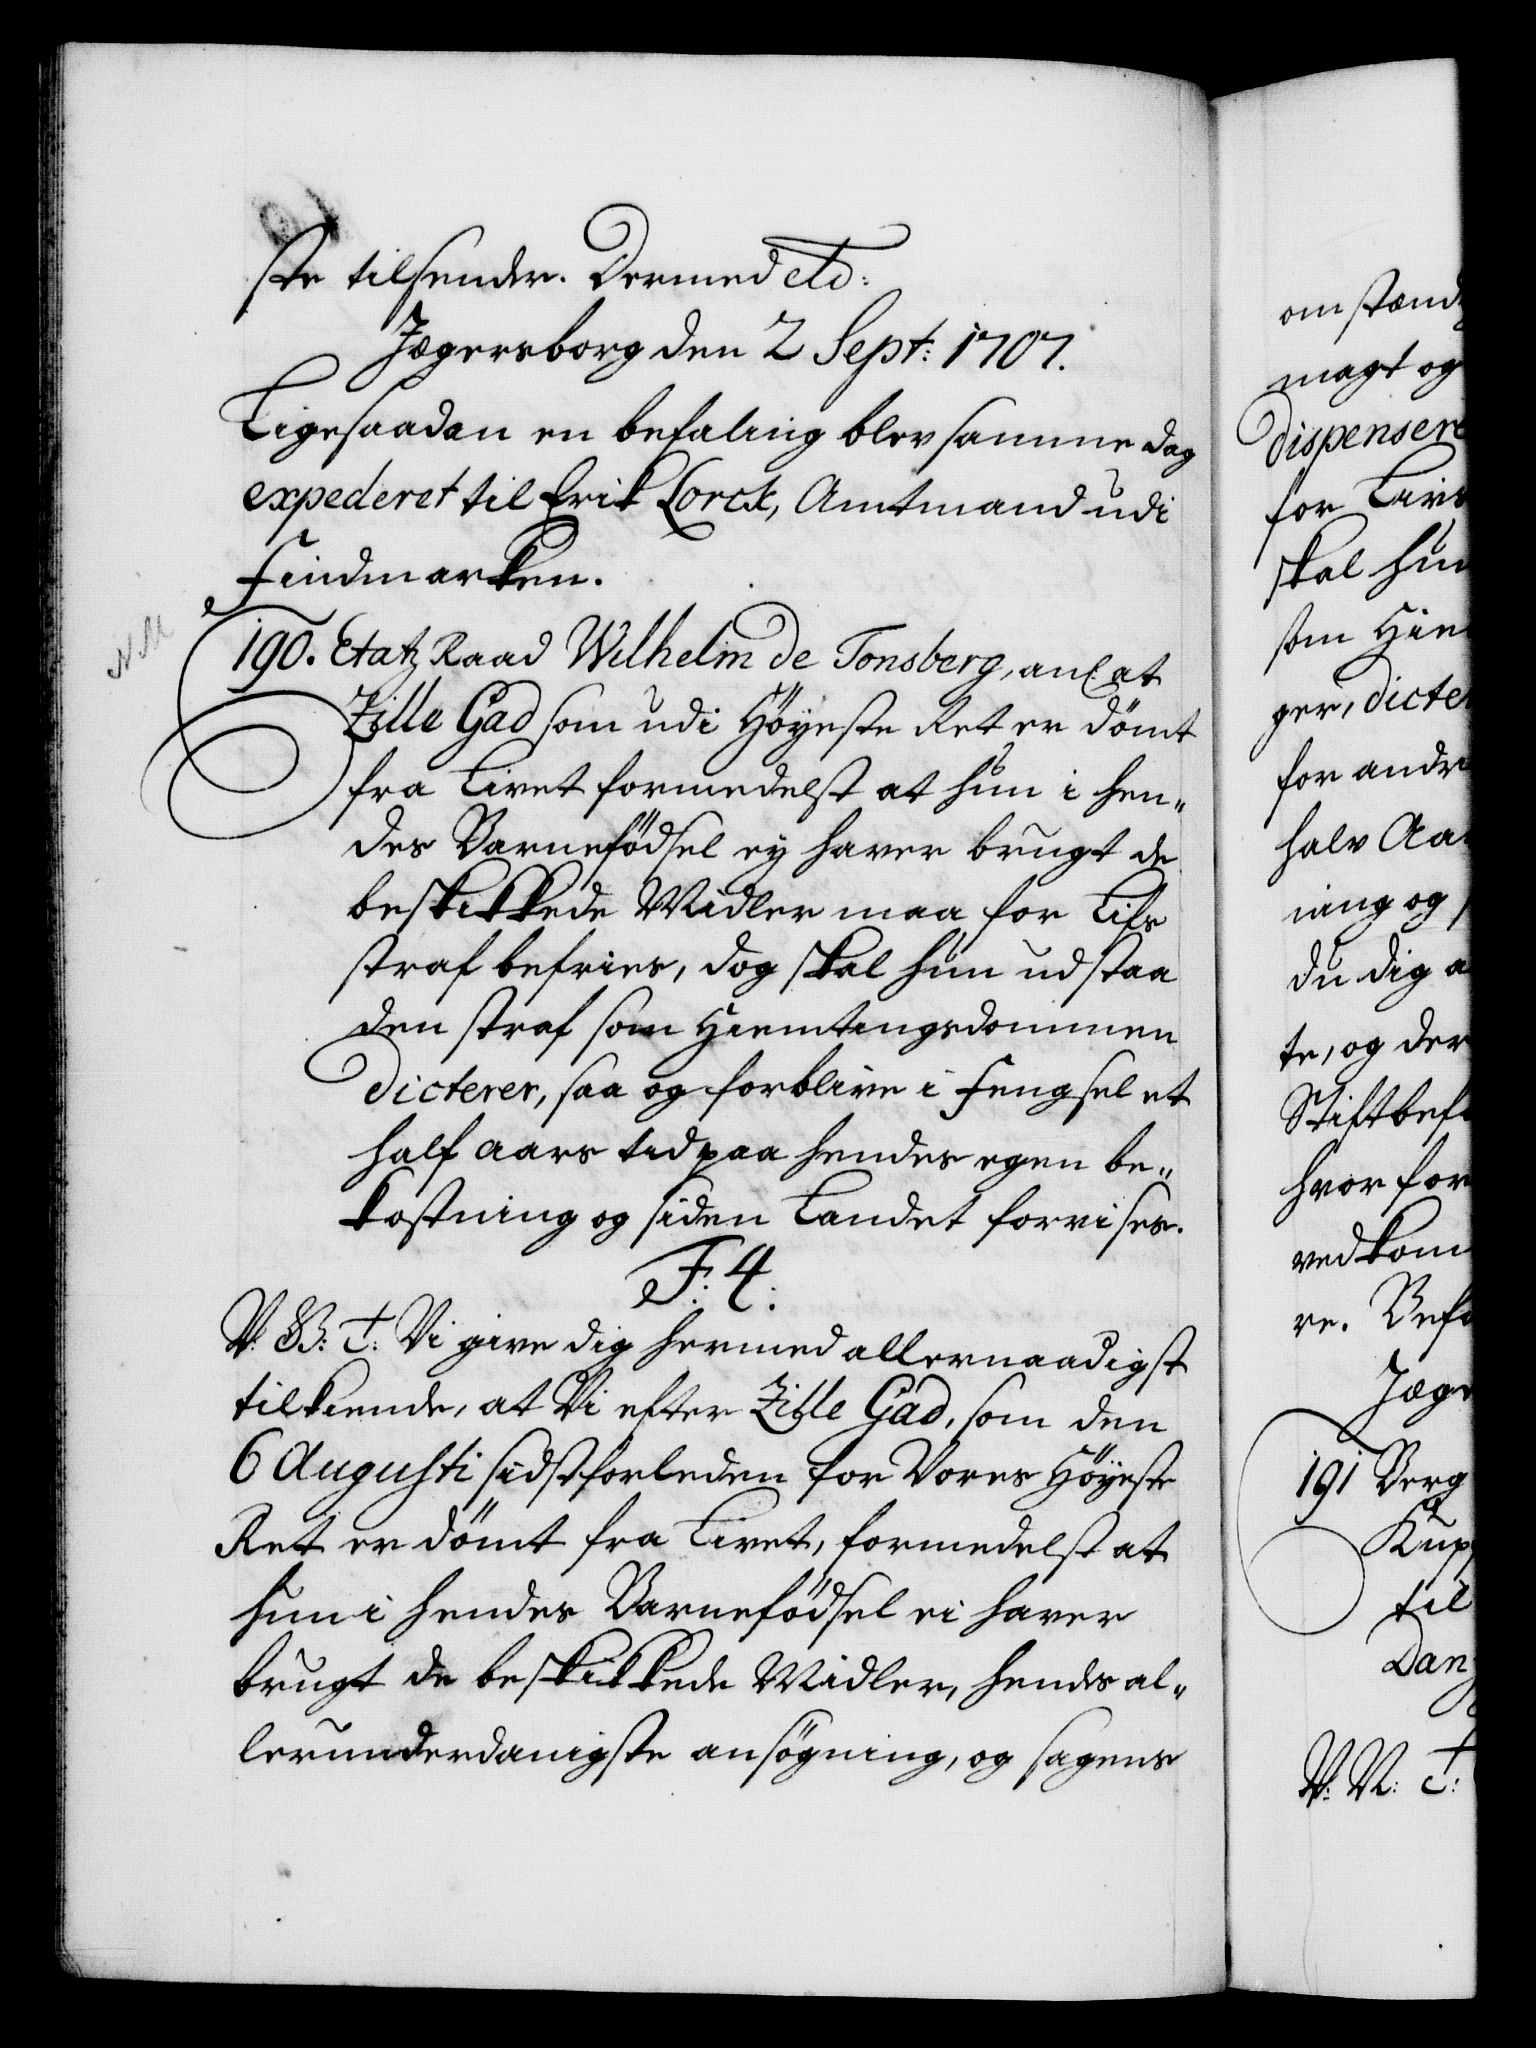 ste tilsender. Dermed etc:
Jægersborg den 2 Sept: 1707.
Ligesaadan en befaling blev samme dag
expederet til Erik Lorck, Amtmand udi
Findmarken.
190. Etatz Raad Wilhelm de Tonsberg, anl. at
Zille Gad som udi Höyeste Ret er dömt
fra Livet formedelst at hun i hen„
des Barnefödsel ey haver brugt de
beskikkede Midler maa for Lifs
straf befries, dog skal hun udstaa
den straf som Hiemtingsdommen
dicterer, saa og forblive i Fengsel et
half aars tid paa hendes egen be„
kostning og siden Landet forvises.
F: 4.
V: G: T: Vi give dig hermed allernaadigst
tilkiende, at Vi efter Zille Gad, som den
6 Augusti sidstforleden for Vores Höyeste
Ret er dömt fra Livet, formedelst at
hun i hendes Barnefödsel ei haver
brugt de beskikkede Midler, hendes al„
lerunderdanigste ansögning, og sagens
omstænd
magt og
dispensere
for Livs
skal hun
som Hie
ger, dicte
for andr
halv Aa
ning og
du dig a
te, og der
Stiftbef
hvor for
vedkom
re. Befa
Jæge
191 Berg
Kup
til
Dan
V: V: T: